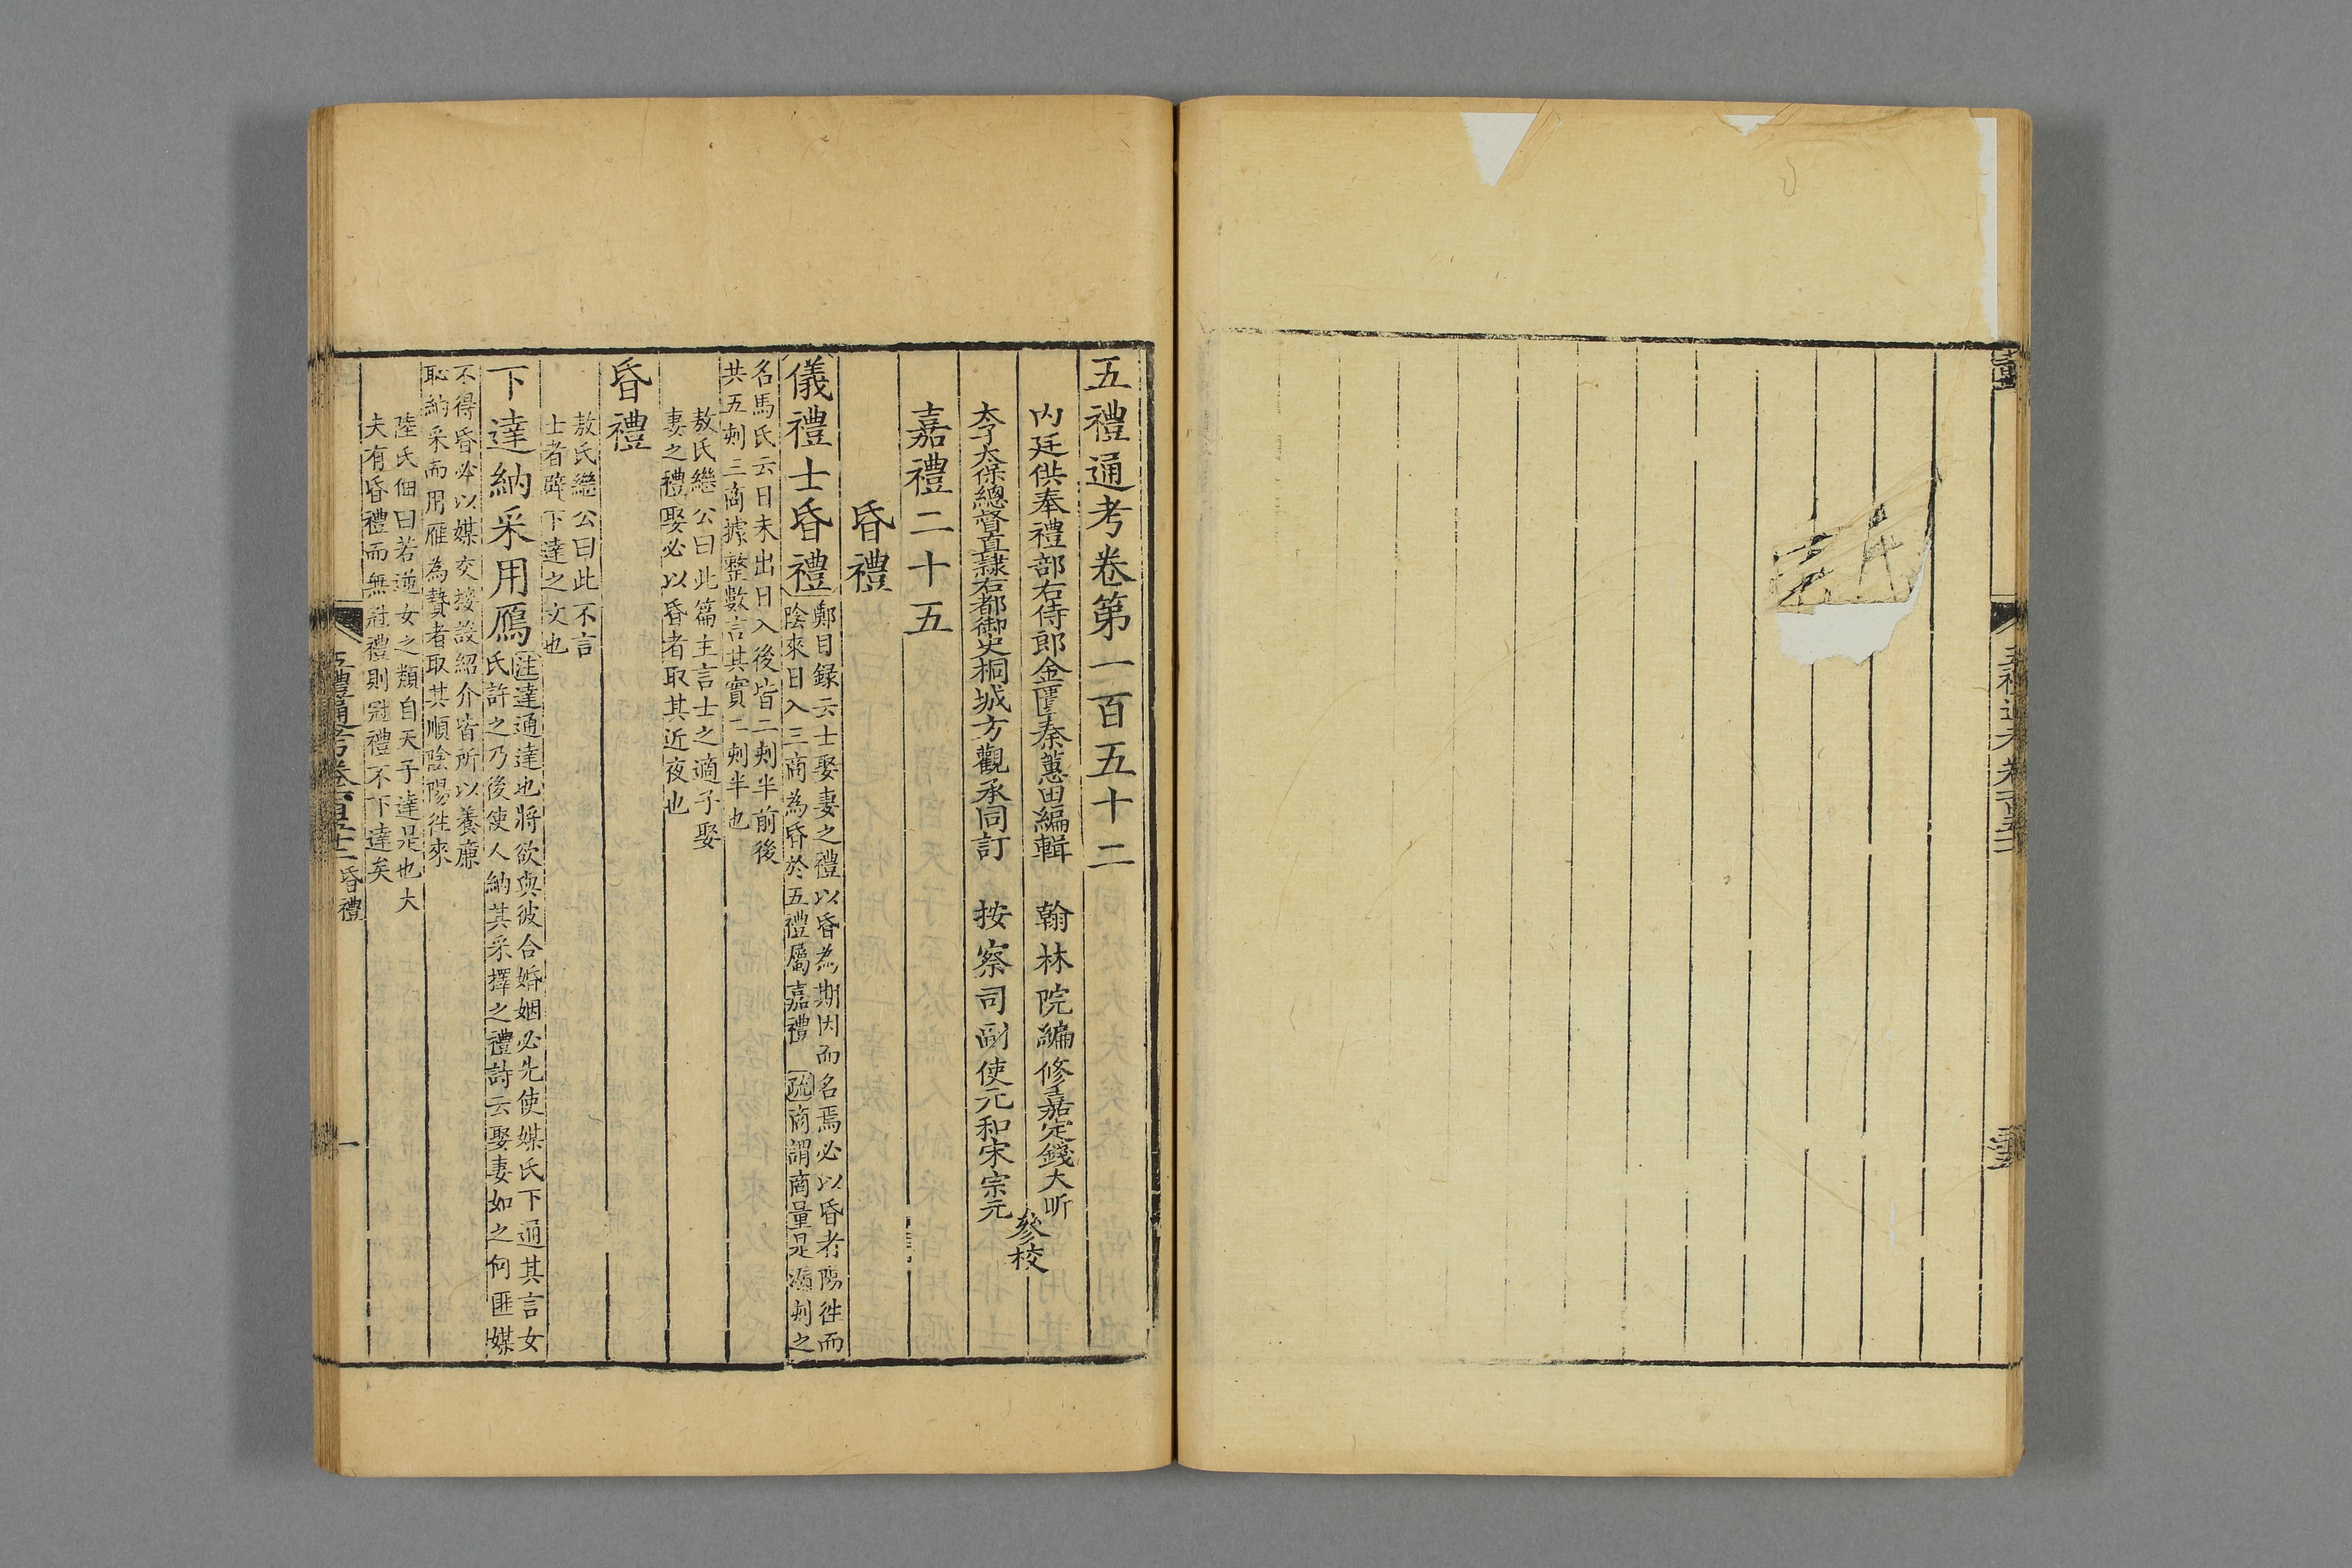 五禮通考卷第一百五十二
內廷供奉禮部右侍郎金匱秦蕙田編輯 翰林院編修嘉定錢大昕
太子太保總督直隸右都御史桐城方觀承同訂 按察司副使元和宋宗元
參校
嘉禮二十五
昏禮
儀禮士昏禮
鄭目録云士娶妻之禮以昏為期因而名焉必以昏者陽徃而
陰來日入三商為昏於五禮屬嘉禮 疏商謂商量是漏刺之
名馬氏云日未出日入後皆二刺半前後
共五刺三商據整數言其實二刺半也
敖氏繼公曰此篇主言士之適子娶
妻之禮娶必以昏者取其近夜也
昏禮
敖氏繼公曰此不言
士者辟下達之文也
下達納采用鴈
注達通達也將欲與彼合婚姻必先使媒氏下通其言女
氏許之乃後使人納其采擇之禮詩云娶妻如之何匪媒
不得昏必以媒交接設紹介皆所以養廉
恥納采而用雁為贄者取其順陰陽徃來
陸氏佃曰若逆女之類自天子達是也大
夫有昏禮而無冠禮則冠禮不下達矣
五禮通考卷一百五十二 昏禮
一